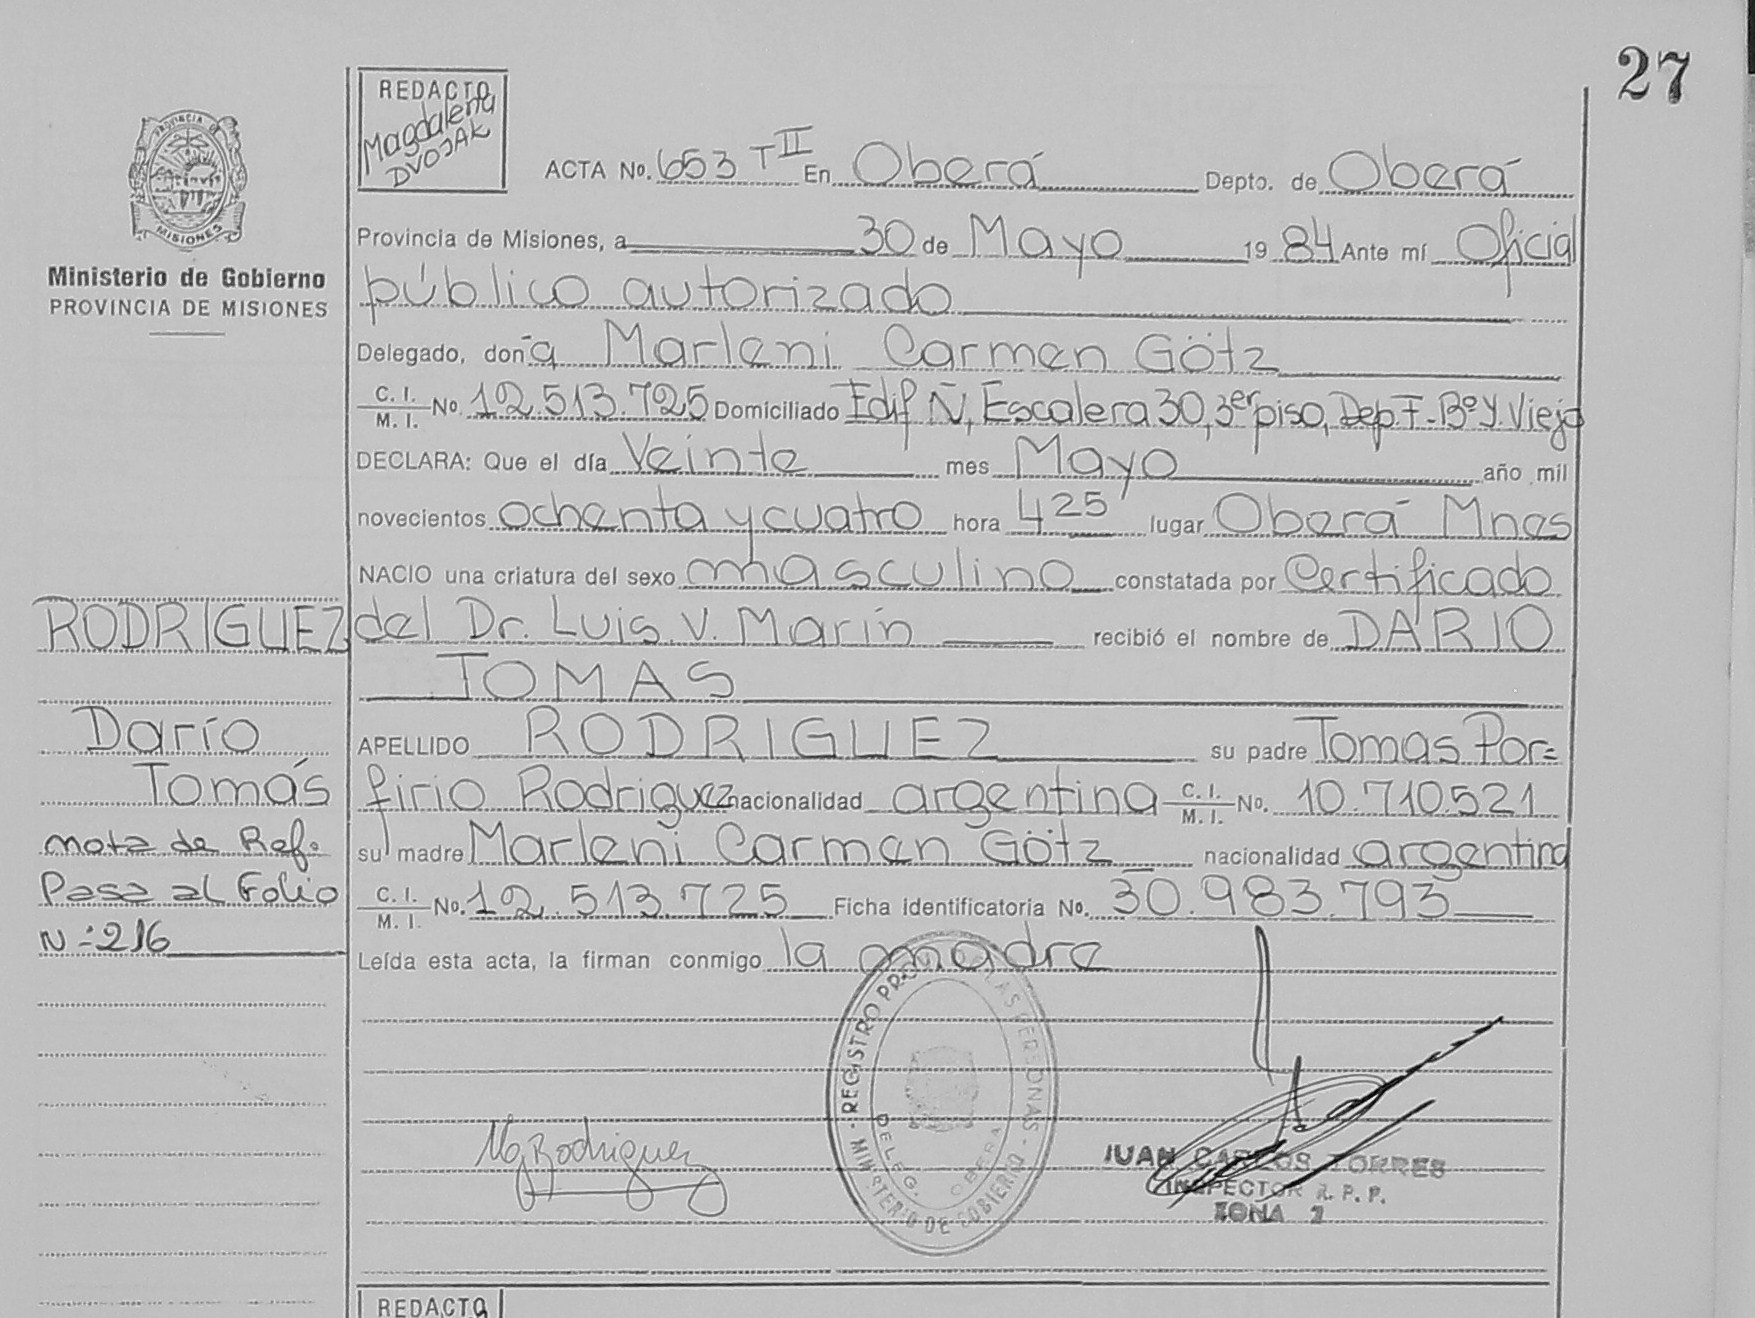 27
REDACTO
Magdalena
DVOJAK
ACTA No. 653 T II En Oberá Depto. de Oberá
PROVINCIA DE
MISIONES
Provincia de Misiones, a 30 de Mayo 1984 Ante mí Oficial
Ministerio de Gobierno
PROVINCIA DE MISIONES
público autorizado
Delegado, doña Marleni Carmen Götz
C. I. / M. I. No. 12.513.725 Domiciliado Edif Ñ, Escalera 30, 3er piso, Dep. F - Bº Y. Viejo
DECLARA: Que el día Veinte mes Mayo año mil
novecientos ochenta y cuatro hora 4 25 lugar Oberá Mnes
NACIO una criatura del sexo masculino constatada por Certificado
RODRIGUEZ
del Dr. Luis V. Marín recibió el nombre de DARIO
TOMAS
Darío
APELLIDO RODRIGUEZ su padre Tomas Por=
Tomás
firio Rodriguez nacionalidad argentina C. I. / M. I. No. 10.710.521
nota de Ref.
su madre Marleni Carmen Götz nacionalidad argentina
Pasa al Folio
C. I. / M. I. No. 12.513.725 Ficha identificatoria No. 30.983.793
N-:216
Leída esta acta, la firman conmigo la madre
REGISTRO PRO LAS PERSONAS
MINISTERIO DE GOBIERNO
DELEG. OBERA
MgRodriguez
JUAN CARLOS TORRES
INSPECTOR R. P. P.
ZONA 2
REDACTO